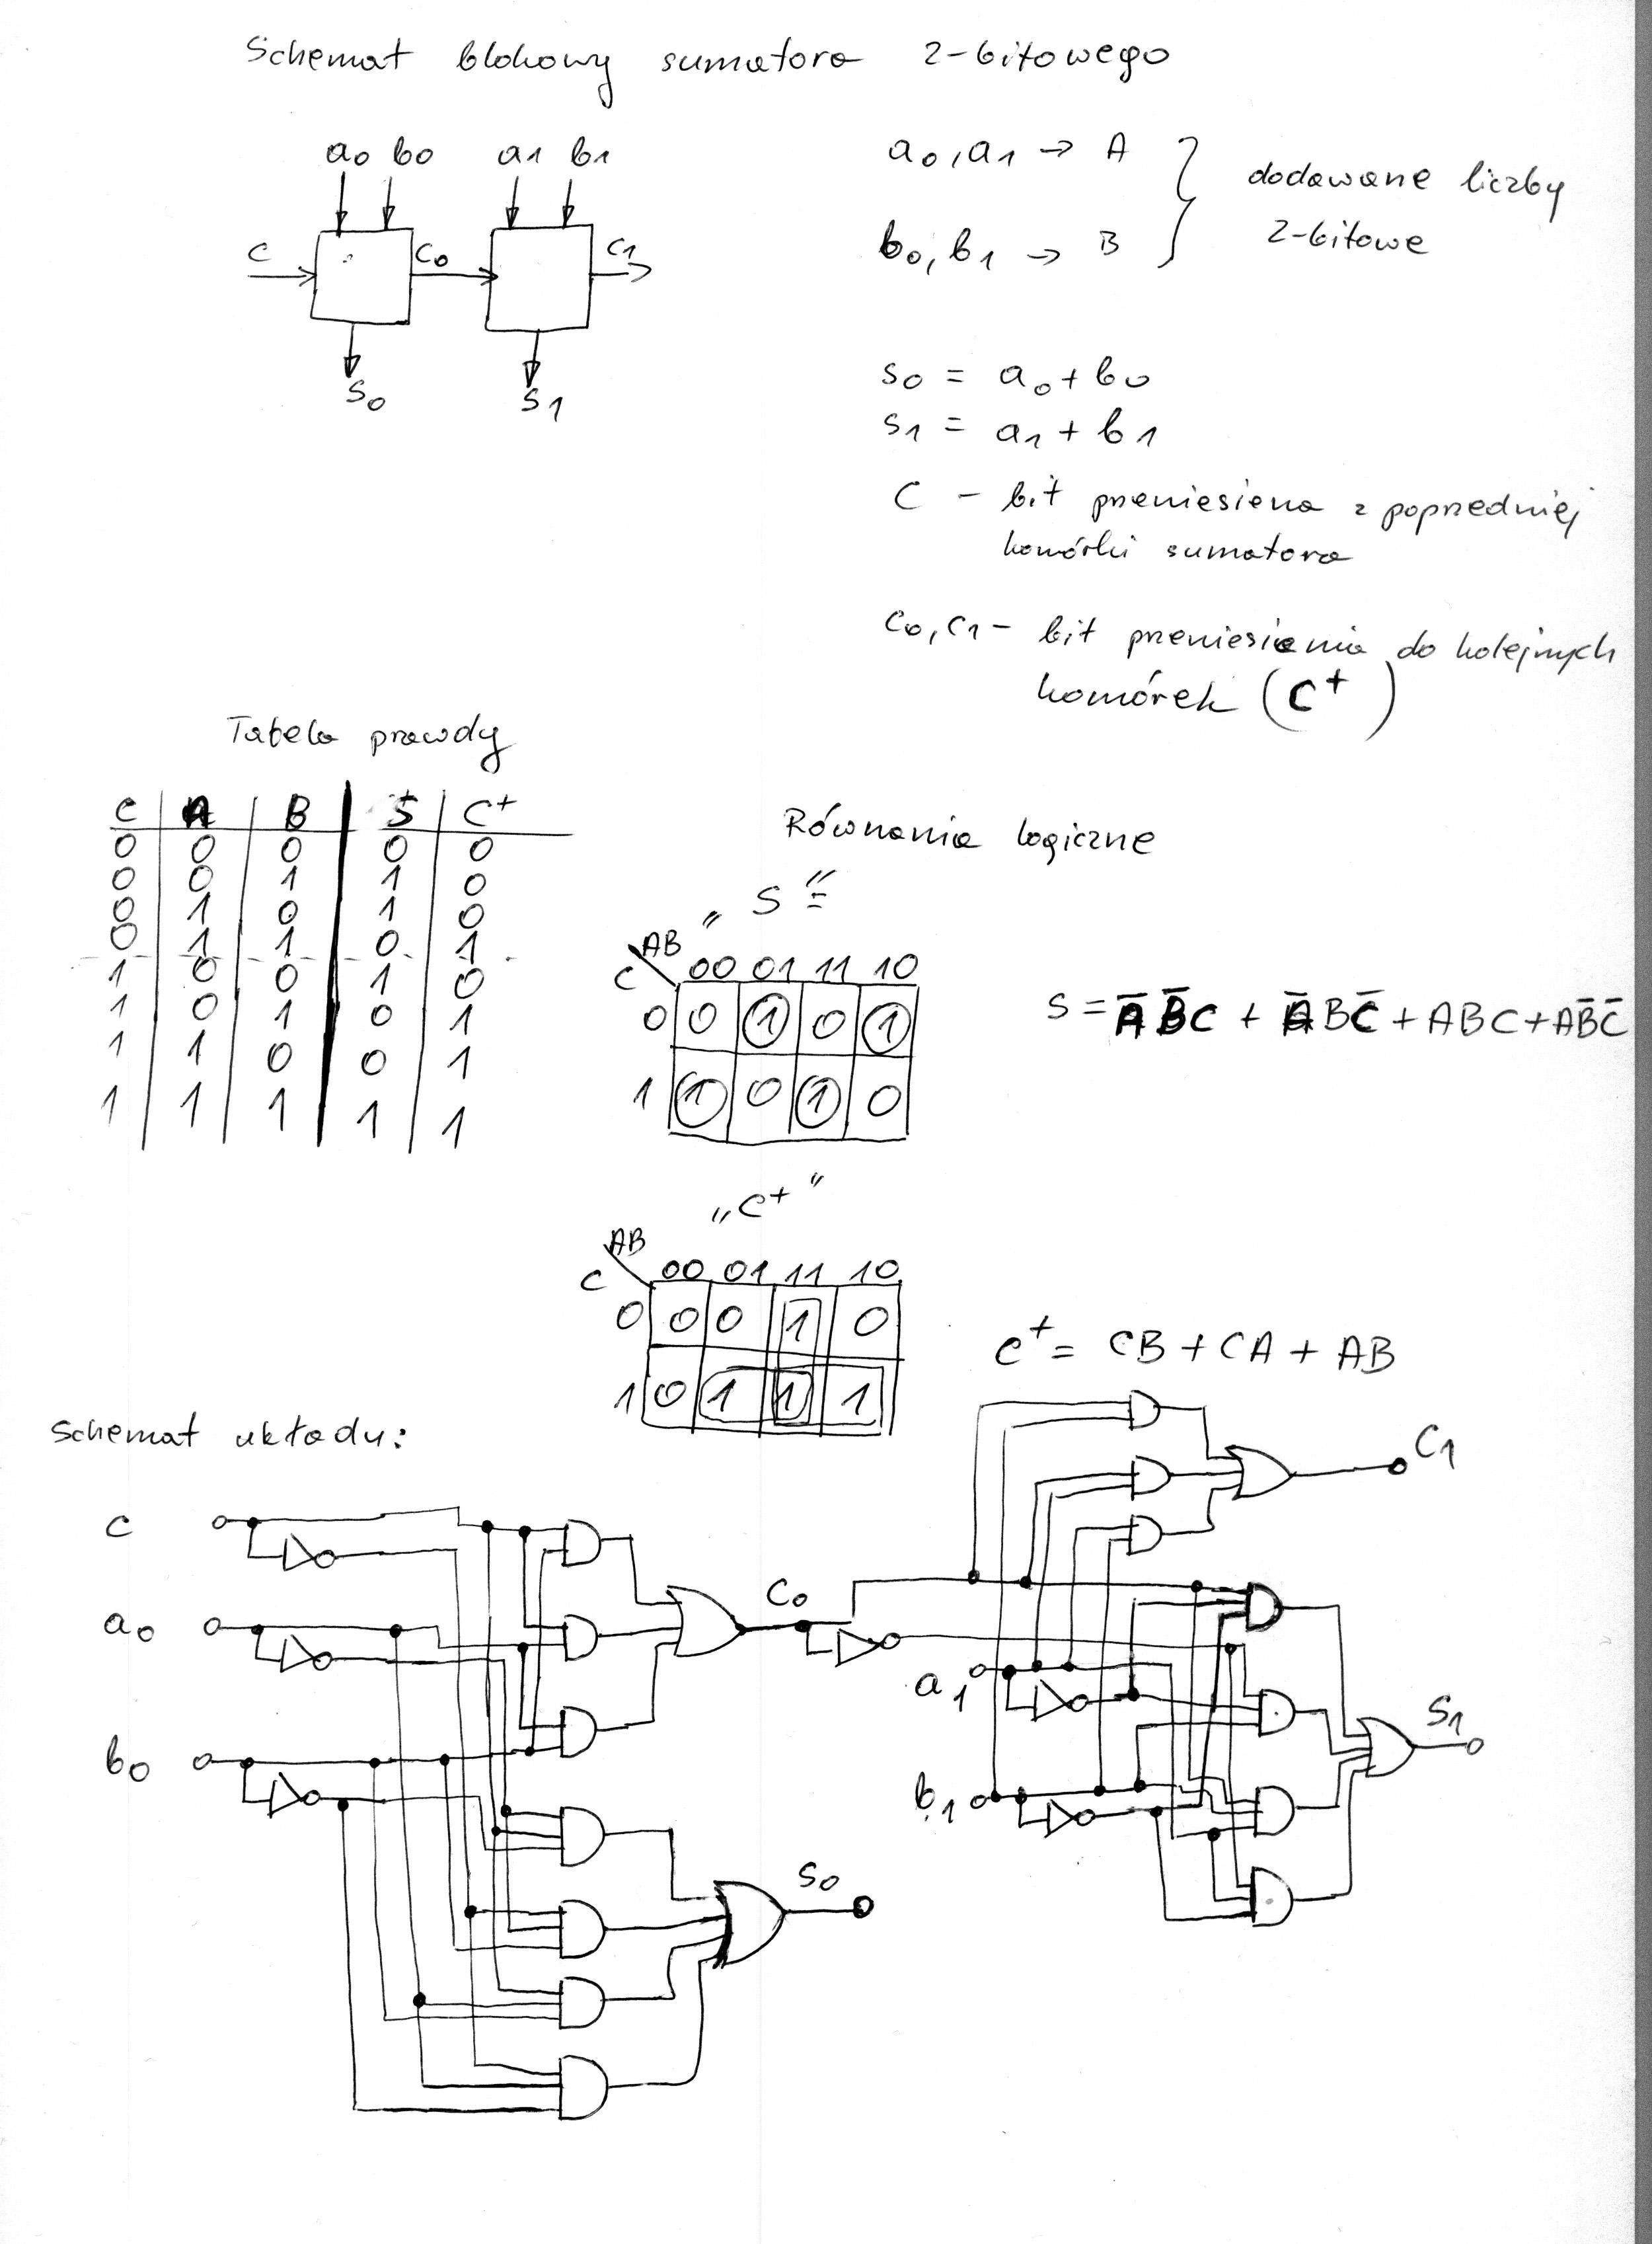 Schemat blokowy sumatora 2-bitowego
a0 b0 a1 b1
C C0 C1
S0 S1
a0, a1 → A } dodawane liczby
b0, b1 → B 2-bitowe
s0 = a0 + b0
s1 = a1 + b1
C - bit przeniesiena z poprzedniej
komórki sumatora
C0, C1 - bit przeniesienia do kolejnych
komórek (C+)
Tabela prawdy
C A B S C+
0 0 0 0 0
0 0 1 1 0
0 1 0 1 0
0 1 1 0 1
1 0 0 1 0
1 0 1 0 1
1 1 0 0 1
1 1 1 1 1
Równania logiczne
„S" =
AB
C 00 01 11 10
0 0 1 0 1
1 1 0 1 0
S = A̅B̅C + A̅BC̅ + ABC + AB̅C̅
„C+"
AB
C 00 01 11 10
0 0 0 1 0
1 0 1 1 1
C+ = CB + CA + AB
Schemat układu:
C
a0
b0
C0
S0
a1
b1
C1
S1